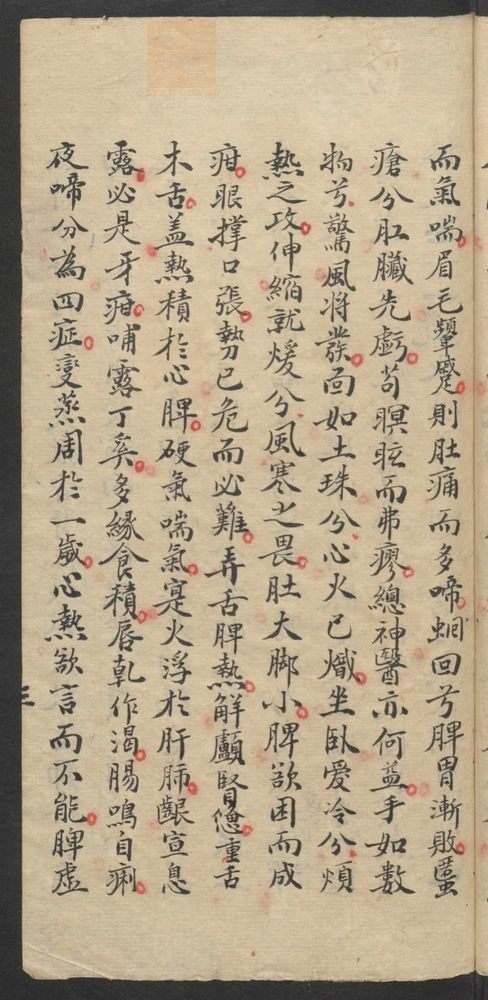 而氣喘眉毛顰蹙則肚痛而多啼蛔回兮脾胃漸敗䘌
瘡兮肛臟先虧苟瞑眩而弗瘳總神醫亦何益手如數
物兮驚風将發面如土珠兮心火已熾坐卧愛冷兮煩
熱之攻伸縮就煖兮風寒之畏肚大脚小脾欲困而成
疳眼撑口張勢已危而必難弄舌脾熱解顱腎憊重舌
木舌盖熱積於心脾硬氣喘氣寔火浮於肝肺齦宣息
露必是牙疳哺露丁奚多緣食積唇乹作渴腸鳴自痢
夜啼分為四症變蒸周於一歲心熱欲言而不能脾虛
三